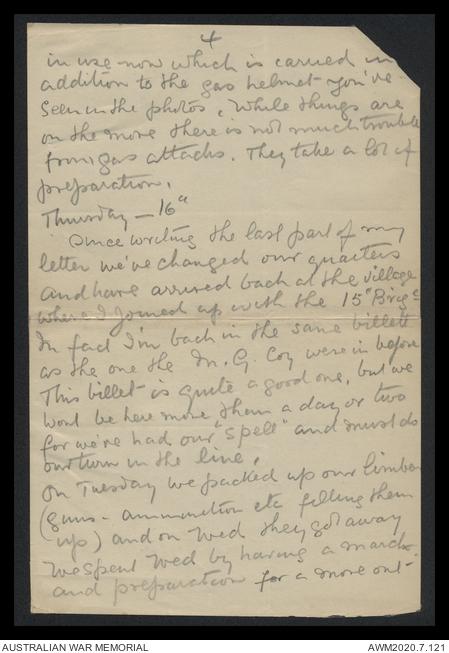 4
in use now which is carried in
addition to the gas helmet you've
seen in the photos. While things are
on the move there is not much trouble
from gas attacks. They take a lot of
preparation.
Thursday - 16"
Since writing the last part of my
letter we've changed our quarters
and have arrived back at the village
where I joined up with the 15" Brig
In fact I'm back in the same billett
as the one the M. G. Coy were in before
This billet is quite a good one, but we
wont be here more than a day or two
for we've had our "spell" and must do
our turn in the line.
On Tuesday we packed up our limber
(guns - ammunition etc filling them
up) and on Wed they got away
We spent Wed by having a march
and preparation for a move out -
AUSTRALIAN WAR MEMORIAL
AWM2020.7.121